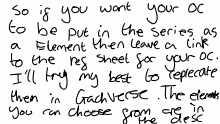 So if you want your OC
to be put in the series as
a Element then leave a link
to the ref sheet for your OC.
I'll try my best to replecate
them in Gachverse. The elements
You can choose from are in
the desc